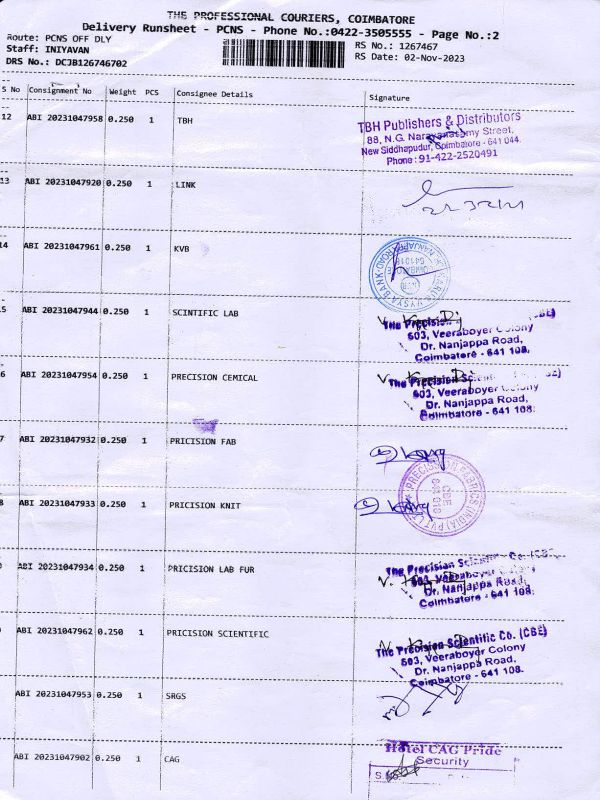 THE PROFESSIONAL COURIERS, COIMBATORE
Delivery Runsheet - PCNS - Phone No.:0422-3505555 - Page No.:2
Route: PCNS OFF DLY
Staff: INIYAVAN
DRS No.: DCJB126746702
RS No.: 1267467
RS Date: 02-Nov-2023
S No Consignment No Weight PCS Consignee Details Signature
12 ABI 20231047958 0.250 1 TBH
TBH Publishers & Distributors
88, N.G. Narayanasamy Street,
New Siddhapudur, Coimbatore - 641 044.
Phone : 91-422-2520491
13 ABI 20231047920 0.250 1 LINK
14 ABI 20231047961 0.250 1 KVB
VYSYA BANK
5 ABI 20231047944 0.250 1 SCINTIFIC LAB
The Precision
603, Veeraboyer Colony
Dr. Nanjappa Road,
Coimbatore - 641 108.
6 ABI 20231047954 0.250 1 PRECISION CEMICAL
The Precision Scien
603, Veeraboyer Colony
Dr. Nanjappa Road,
Coimbatore - 641 108.
7 ABI 20231047932 0.250 1 PRICISION FAB
8 ABI 20231047933 0.250 1 PRICISION KNIT
PRECISION FABRICS (INDIA) PVT LTD
CBE
641 018
ABI 20231047934 0.250 1 PRICISION LAB FUR
The Precision Scientific Co.
603, Veeraboyer Colony
Dr. Nanjappa Road,
Coimbatore - 641 108.
ABI 20231047962 0.250 1 PRICISION SCIENTIFIC
The Precision Scientific Co. (CBE)
603, Veeraboyer Colony
Dr. Nanjappa Road,
Coimbatore - 641 108.
ABI 20231047953 0.250 1 SRGS
ABI 20231047902 0.250 1 CAG
Hotel CAG Pride
Security